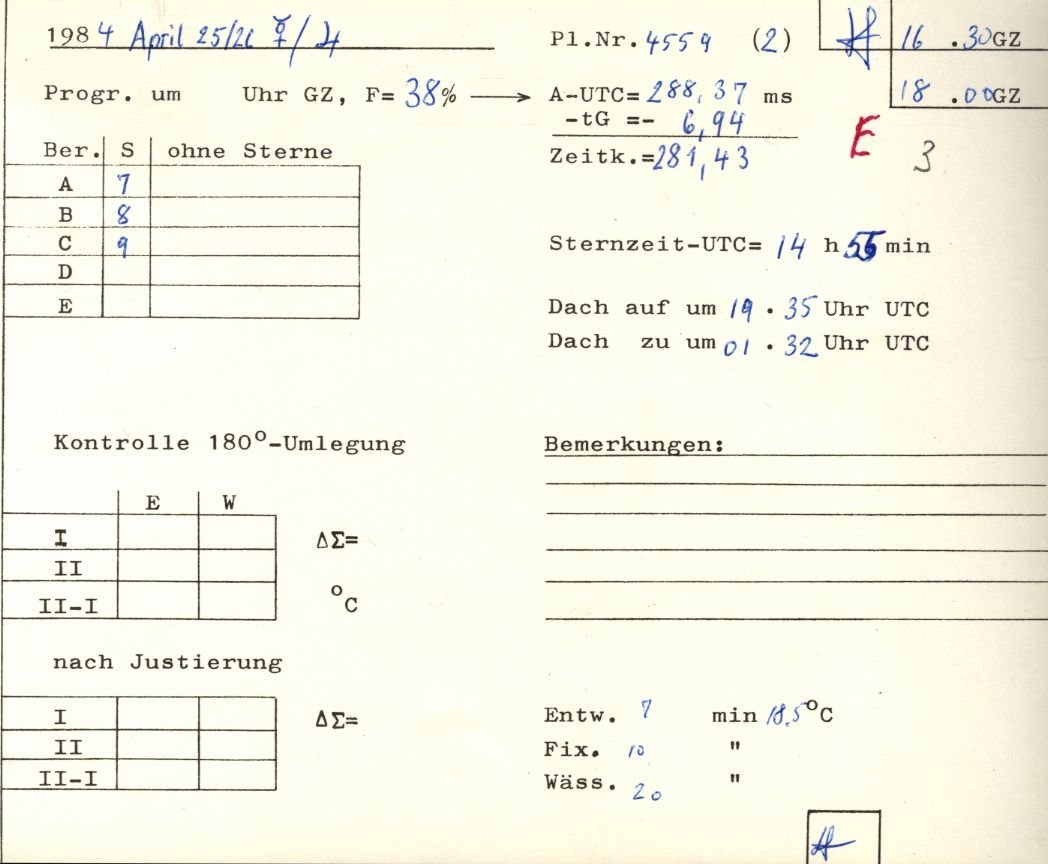 1984 April 25/26 ☿/♃
Pl.Nr. 4559 (2)
16 .30GZ
Progr. um Uhr GZ, F= 38% → A-UTC= 288,37 ms
18 .00GZ
-tG =- 6,94
E 3
Zeitk.=281,43
Ber. S ohne Sterne
A 7
B 8
C 9
D
E
Sternzeit-UTC= 14 h 55 min
Dach auf um 19 . 35 Uhr UTC
Dach zu um 01 . 32 Uhr UTC
Kontrolle 180°-Umlegung
E W
I ΔΣ=
II
II-I °C
Bemerkungen:
nach Justierung
I ΔΣ=
II
II-I
Entw. 7 min 18,5°C
Fix. 10 "
Wäss. 20 "